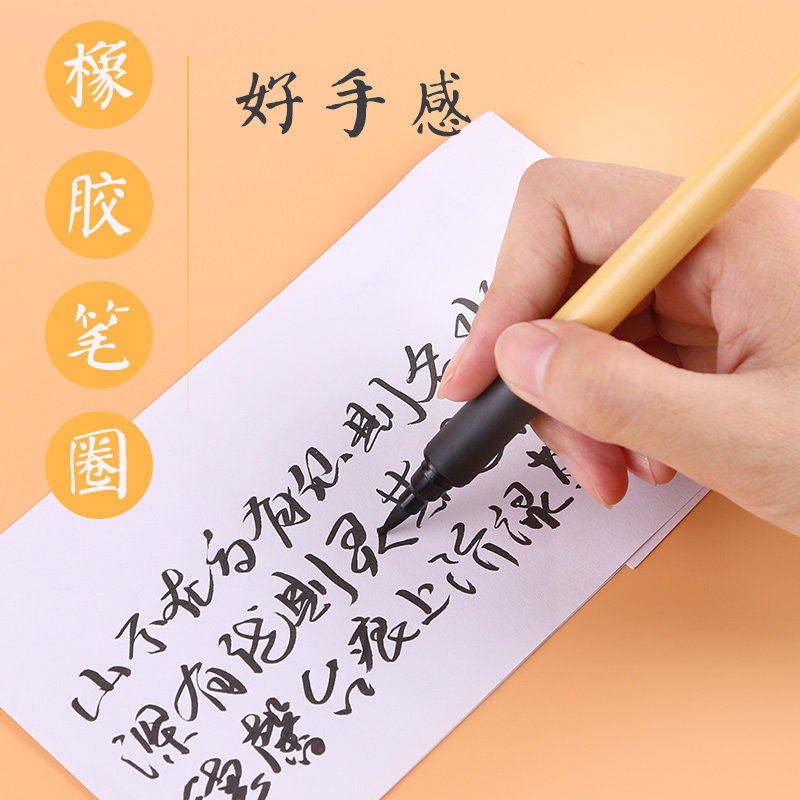 橡胶笔圈
好手感
山不在高有仙则名水
深有龙则灵
德馨苔痕上阶绿